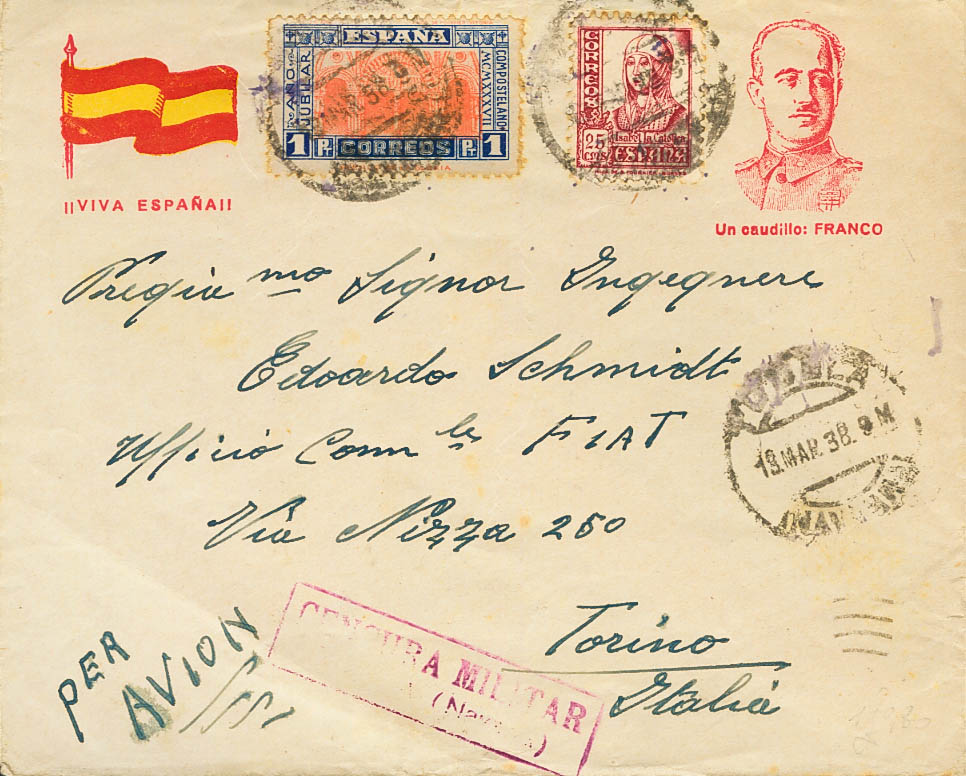 ESPAÑA
AÑO JUBILAR
COMPOSTELANO
MCMXXXVII
1 Pta CORREOS Pta 1
CORREOS
Isabel la Católica
25 CTMS ESPAÑA
¡¡VIVA ESPAÑA!!
Un caudillo: FRANCO
Pregia mo Signor Ingegnere
Edoardo Schmidt
Ufficio Comm le FIAT
Via Nizza 250
TUDELA
13.MAR.38.9M
(NAVARRA)
Torino
Italia
PER
AVION
CENSURA MILITAR